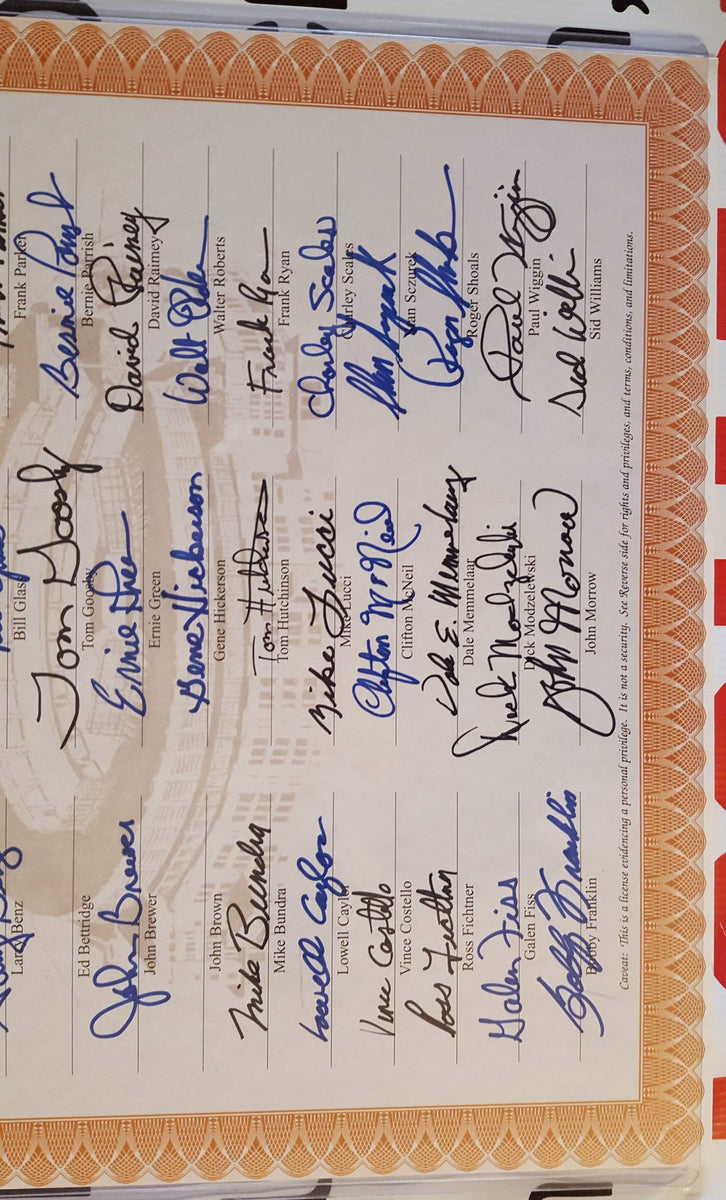 Larry Benz
Ed Bettridge
John Brewer
John Brewer
John Brown
Mike Bundra
Mike Bundra
Lowell Caylor
Lowell Caylor
Vince Costello
Vince Costello
Ross Fichtner
Ross Fichtner
Galen Fiss
Galen Fiss
Bobby Franklin
Bobby Franklin
Bill Glass
Tom Goosby
Tom Goosby
Ernie Green
Ernie Green
Gene Hickerson
Gene Hickerson
Tom Hutchinson
Tom Hutchinson
Mike Lucci
Mike Lucci
Clifton McNeil
Clifton McNeil
Dale E. Memmelaar
Dale Memmelaar
Dick Modzelewski
Dick Modzelewski
John Morrow
John Morrow
Frank Parker
Bernie Parrish
Bernie Parrish
David Rainey
David Rainey
Walt Roberts
Walter Roberts
Frank Ryan
Frank Ryan
Charley Scales
Charley Scales
Stan Sczurek
Stan Sczurek
Roger Shoals
Roger Shoals
Paul Wiggin
Paul Wiggin
Sid Williams
Sid Williams
Caveat: This is a license evidencing a personal privilege. It is not a security. See Reverse side for rights and privileges, and terms, conditions, and limitations.